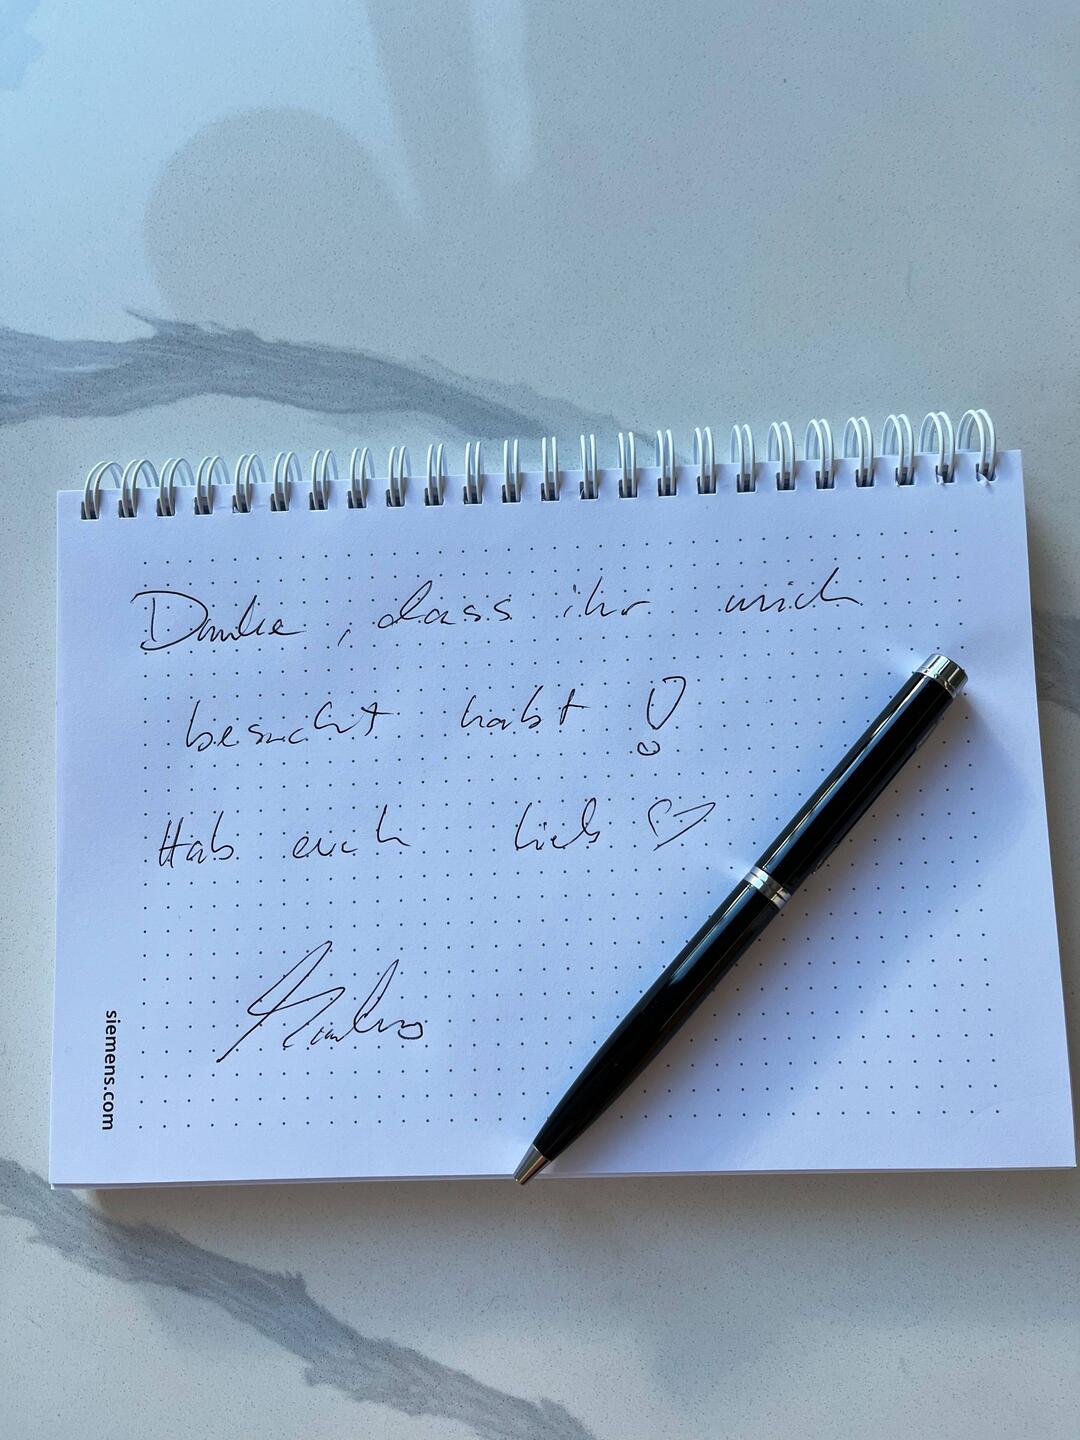 Danke, dass ihr mich
besucht habt!
Hab euch lieb ♡
siemens.com